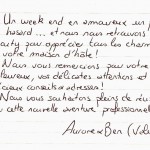 Un week end en amoureux sur
hasard ... et nous nous retrouvons
pour apprécier tous les charmes
votre maison d'hôte !
Nous vous remercions pour votre
vos délicates attentions et
conseils et adresses !
Nous vous souhaitons pleins de
cette nouvelle aventure professionnel
Aurore et Ben